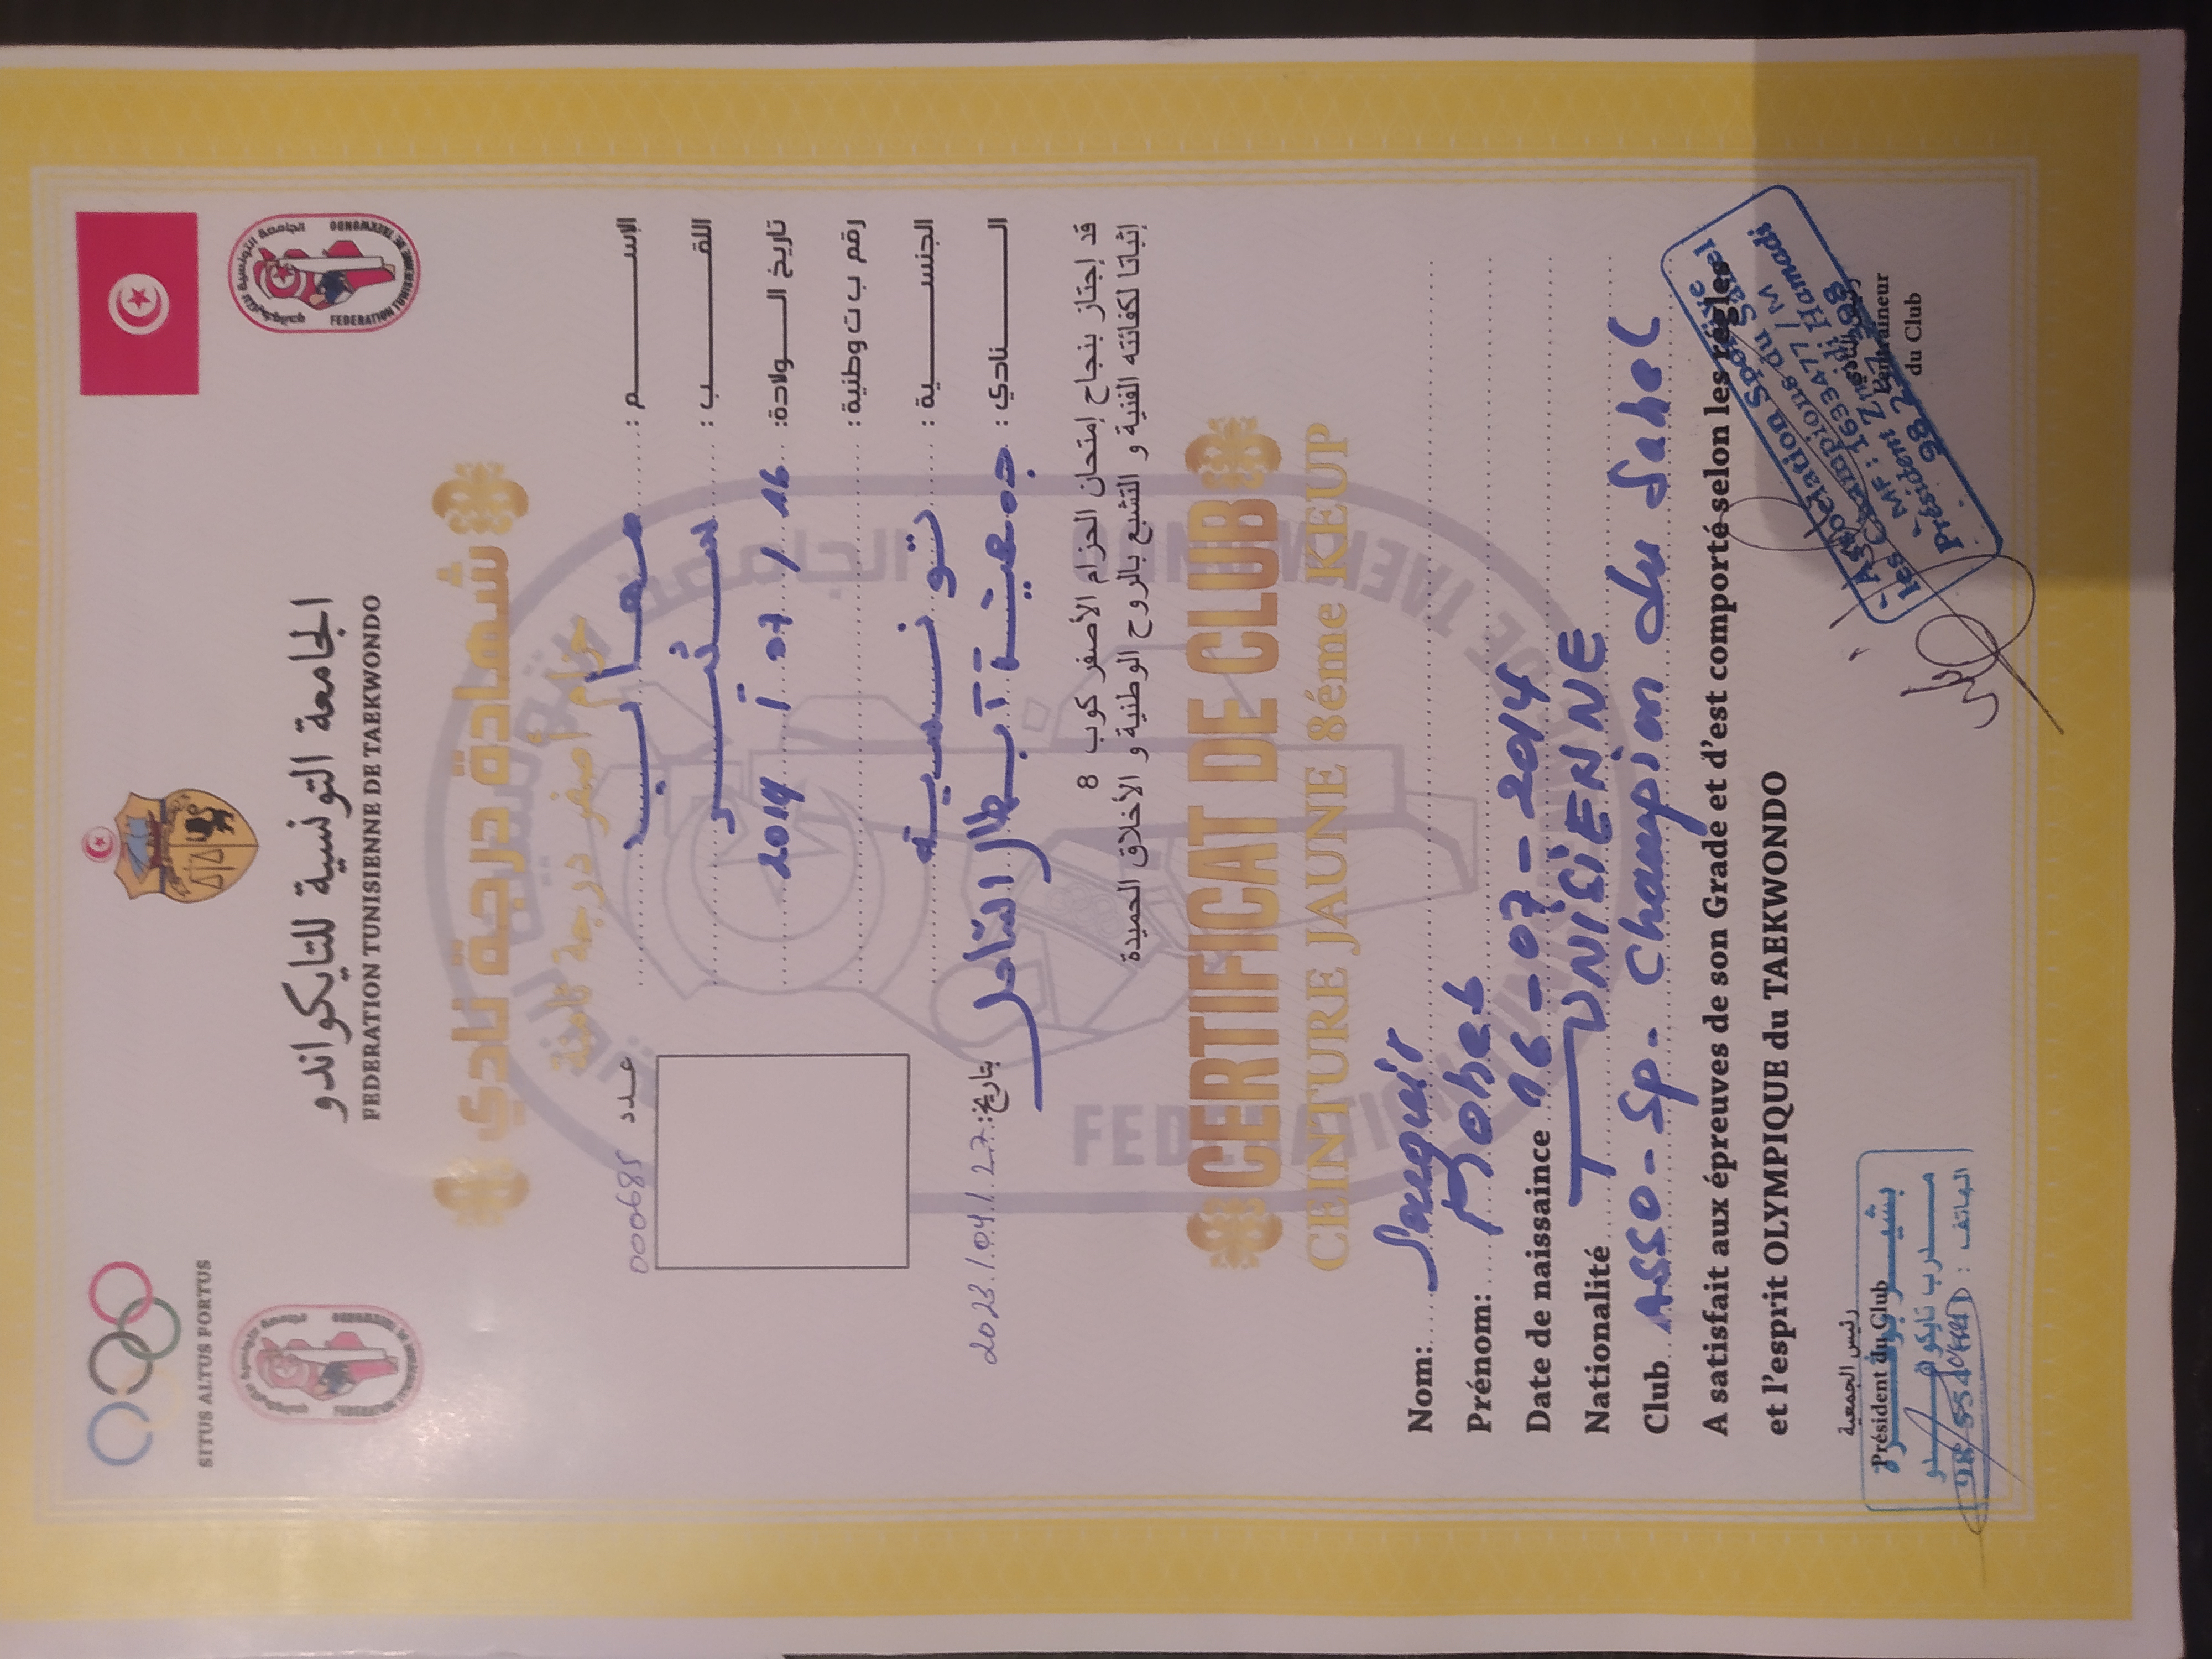 SITUS ALTUS FORTUS
الجامعة التونسية للتايكواندو
FEDERATION TUNISIENNE DE TAEKWONDO
شهادة درجة نادي
حزام أصفر درجة ثامنة
عدد 000685
الإســــم :
اللقــــب :
تاريخ الـــولادة: 16 / 07 / 2014
رقم ب ت وطنية :
الجنســـــية : تونسية
الـــــنادي : جمعية أبطال الساحل
بتاريخ: 2023/04/27
قد إجتاز بنجاح إمتحان الحزام الأصفر كوب 8
إثباتا لكفائته الفنية و التشبع بالروح الوطنية و الأخلاق الحميدة
CERTIFICAT DE CLUB
CEINTURE JAUNE 8éme KEUP
Nom:
Prénom: Moheb
Date de naissaince 16-07-2014
Nationalité TUNISIENNE
Club ASSO-Sp. Champion du Sahel
A satisfait aux épreuves de son Grade et d'est comporté selon les régles
et l'esprit OLYMPIQUE du TAEKWONDO
رئيس الجمعية
Président du Club
مدرب تايكواندو
الهاتف :
L'entraineur
du Club
Association Sportive
les Champions du Sahel
MF : 1633477 / M
Président Hamadi